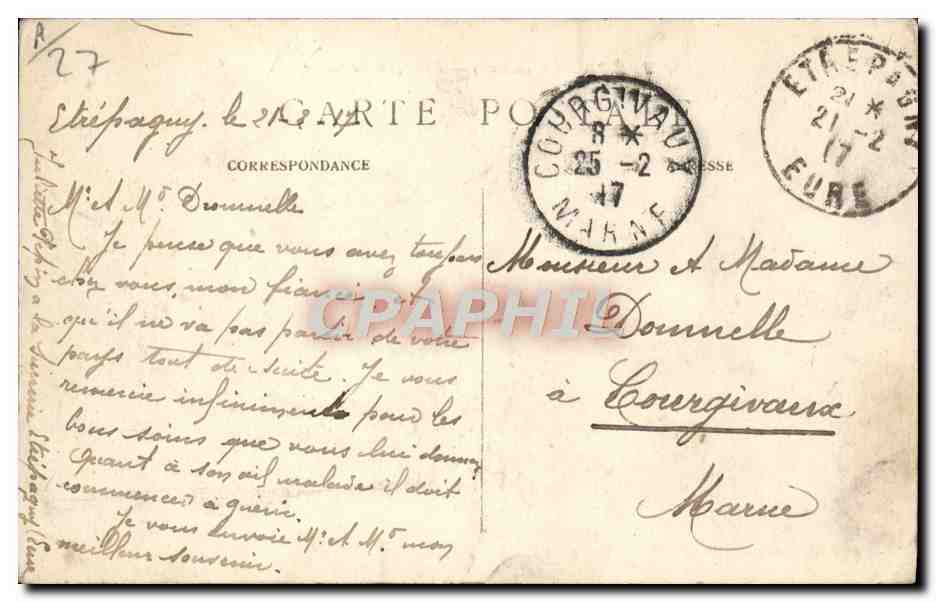 R/27
CARTE POSTALE
Etrépagny, le 21-2-17
CORRESPONDANCE
ADRESSE
Mr et Me Dommelle
Je pense que vous avez toujours
chez vous, mon fiancé et
qu'il ne va pas partir de votre
pays tout de suite. Je vous
remercie infiniment pour les
bons soins que vous lui donnez
quant à son œil malade il doit
commencer à guérir.
Je vous envoie Mr et Me mon
meilleur souvenir.
Juliette à la Sucrerie Etrépagny (Eure
COURGIVAUX
8 *
25 -2
17
MARNE
ETREPAGNY
21 *
21 -2
17
EURE
Monsieur et Madame
Dommelle
à Courgivaux
Marne
CPAPHIL